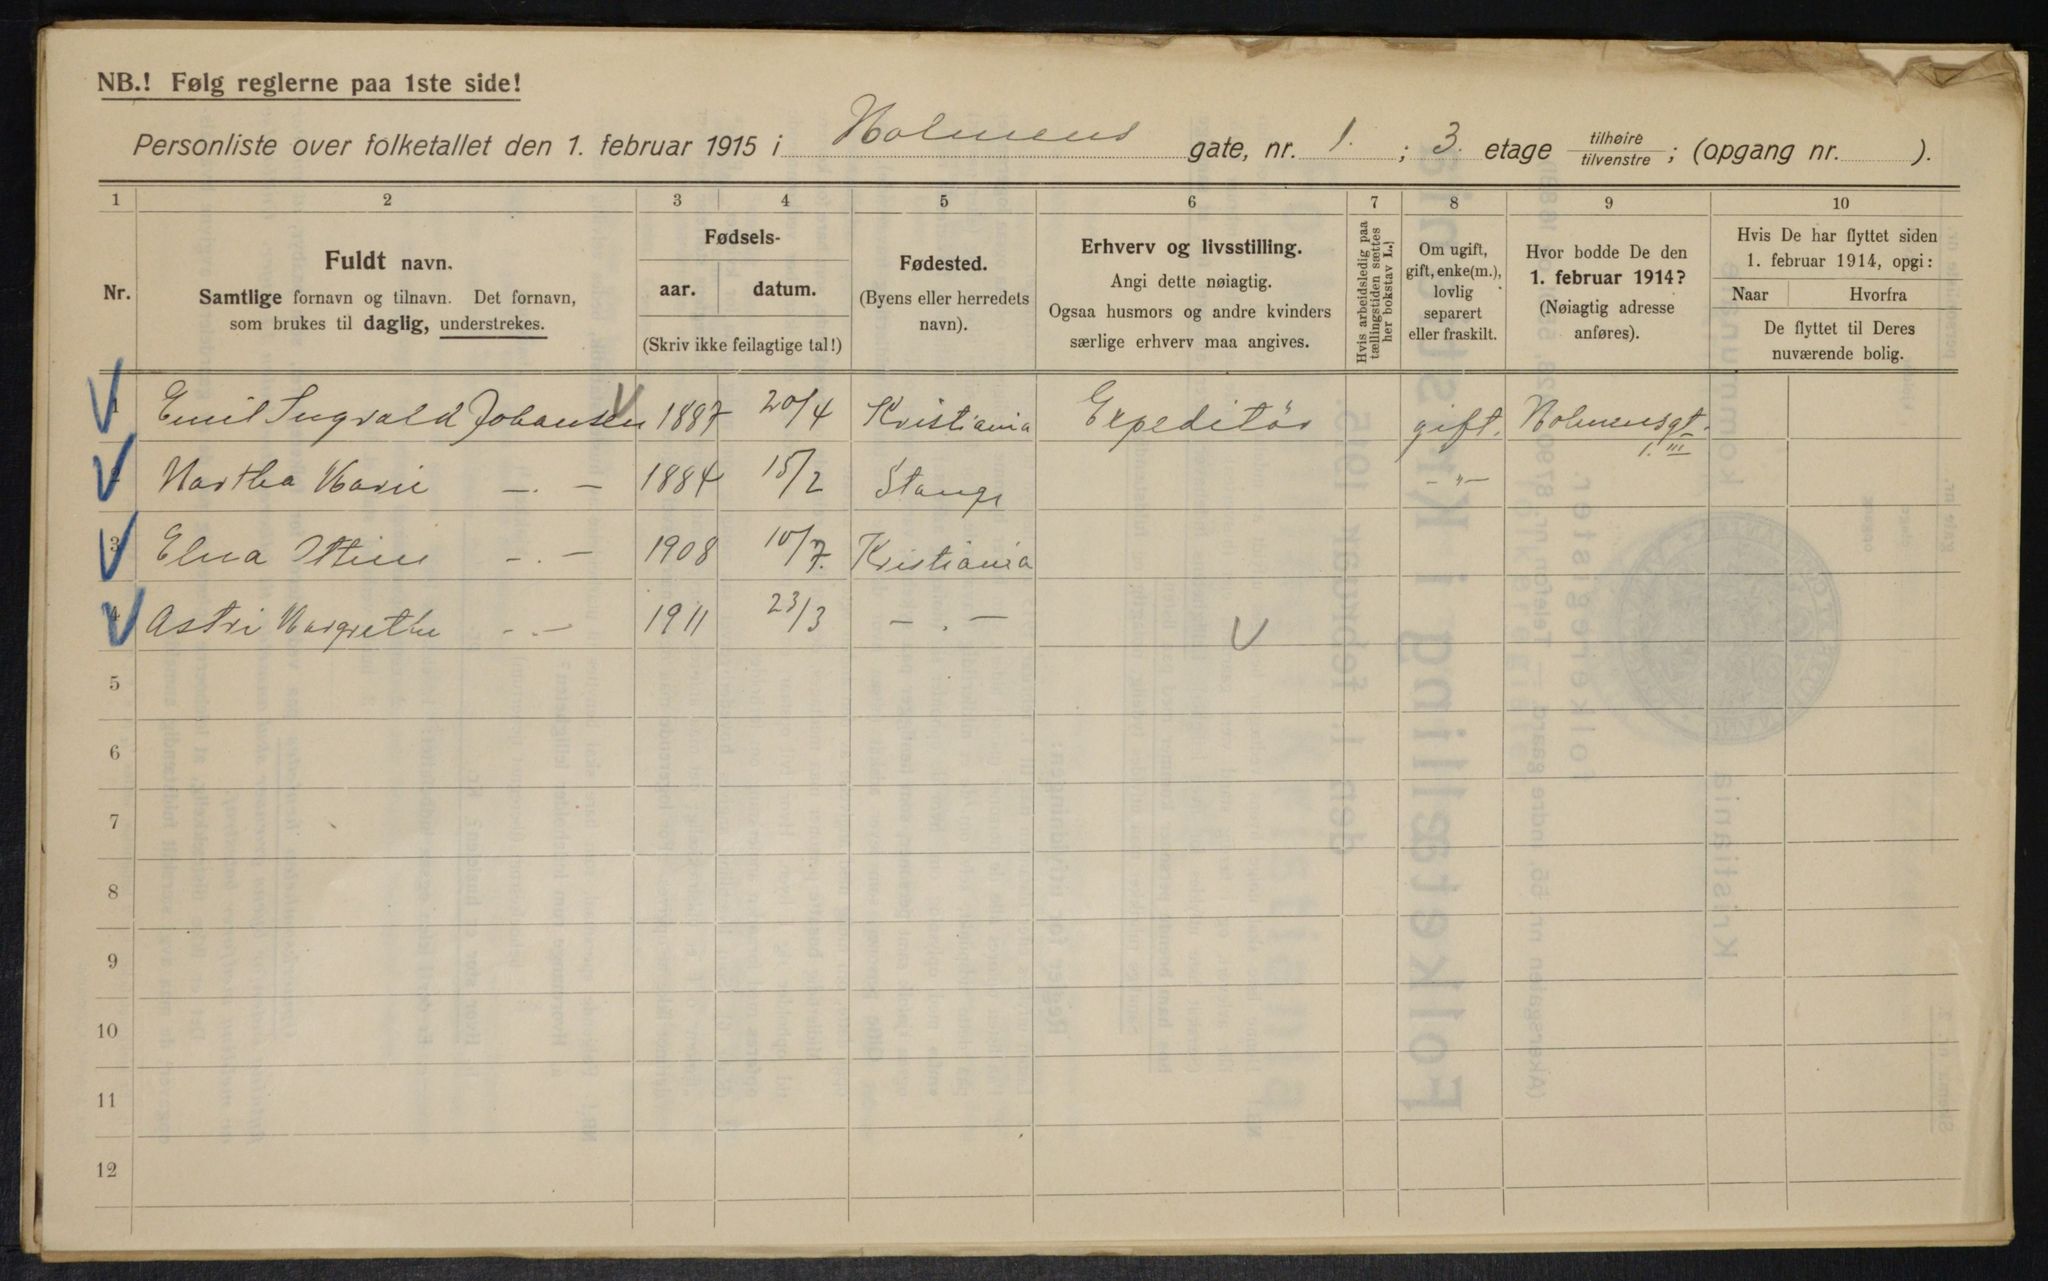 NB.! Følg reglerne paa 1ste side!
Personliste over folketallet den 1. februar 1915 i Holmens gate, nr. 1. ; 3. etage tilhøire / tilvenstre ; (opgang nr. ).
1 2 3 4 5 6 7 8 9 10
Nr.
Fuldt navn.
Samtlige fornavn og tilnavn. Det fornavn,
som brukes til daglig, understrekes.
Fødsels-
aar. datum.
(Skriv ikke feilagtige tal!)
Fødested.
(Byens eller herredets
navn).
Erhverv og livsstilling.
Angi dette nøiagtig.
Ogsaa husmors og andre kvinders
særlige erhverv maa angives.
Hvis arbeidsledig paa
tællingstiden sættes
her bokstav L.)
Om ugift,
gift, enke(m.),
lovlig
separert
eller fraskilt.
Hvor bodde De den
1. februar 1914?
(Nøiagtig adresse
anføres).
Hvis De har flyttet siden
1. februar 1914, opgi:
Naar Hvorfra
De flyttet til Deres
nuværende bolig.
1 Emil Ingvald Johansen 1887 20/4 Kristiania Expeditør gift. Holmensgt.
1. III
2 Martha Marie — . — 1884 15/2 Stange — " —
3 Elna — . — 1908 10/7. Kristiania
4 Astri Margrethe — . — 1911 23/3 — . —
5
6
7
8
9
10
11
12